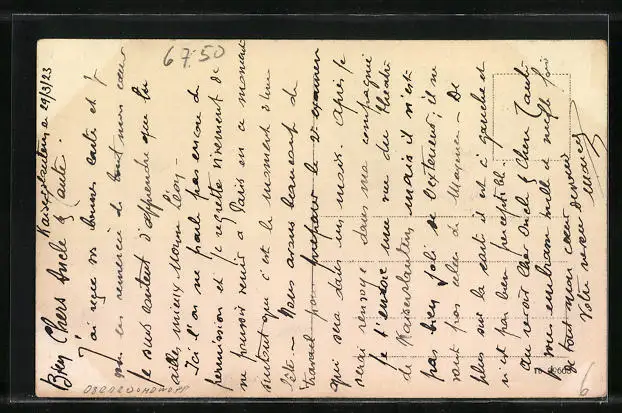 Kaiserslautern 29/3/23
Bien Chers Oncle & Tante.
J'ai reçu vos bonnes cartes et je
vous en remercie de tout mon cœur
Je suis content d'apprendre que tu
ailles mieux
Ici l'on ne parle pas encore de
permission et je regrette vivement de
ne pouvoir venir à Paris en ce moment
surtout que c'est le moment d'une
fête. — Nous avons beaucoup de
travail pour préparer le examen
qui sera dans un mois. Après je
serai renvoyé dans ma compagnie
Je t'envoie une vue du théâtre
de Kaiserslautern mais il n'est
pas bien joli de l'extérieur, il ne
vaut pas celui de Mayence — De
plus sur la carte il est à gauche et
n'est pas bien perceptible.
Au revoir Cher Oncle & Chère Tante
Je vous embrasse mille & mille fois
de tout mon cœur
Votre neveu
Marcel
67.50
6